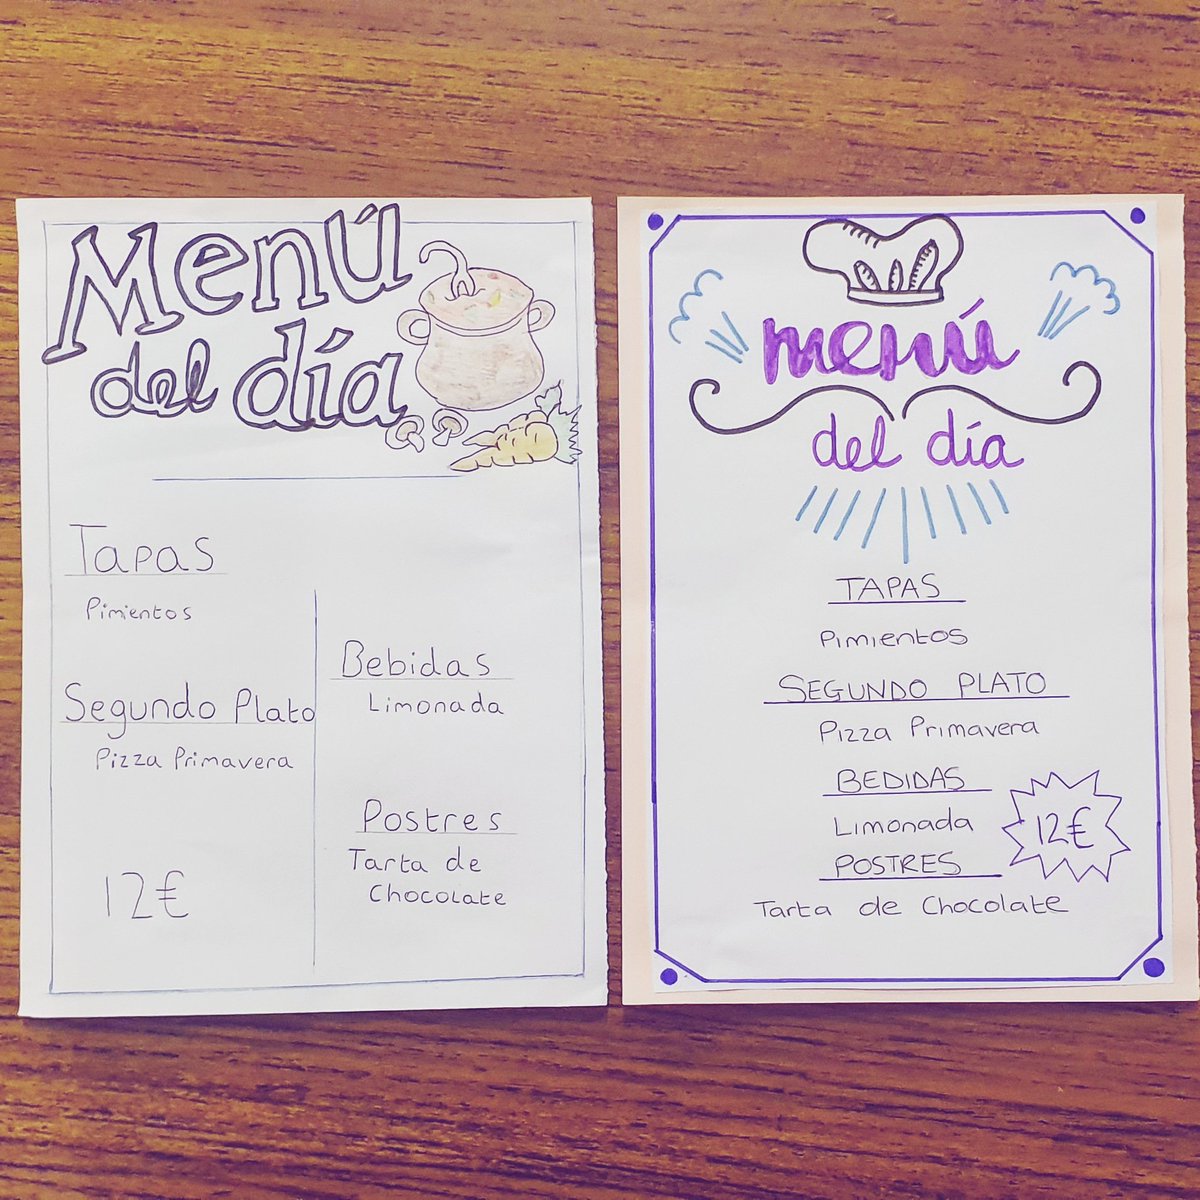 Menú
del día
Tapas
Pimientos
Segundo Plato
Pizza Primavera
12€
Bebidas
Limonada
Postres
Tarta de
Chocolate
menú
del día
TAPAS
Pimientos
SEGUNDO PLATO
Pizza Primavera
BEDIDAS
Limonada
12€
POSTRES
Tarta de Chocolate